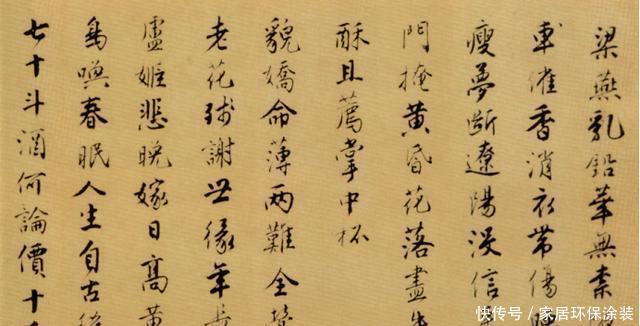 梁燕乳鉛華無柰
車催香消衣帶傷
瘦夢斷遼陽沒信
門掩黄昏花落盡
酥且薦掌中杯
貌嬌命薄兩難全
老花殘謝世緣年
盧姬悲晚嫁日高黄
鳥喚春眠人生自古
七十斗酒何論價十
快传号／家居环保涂装